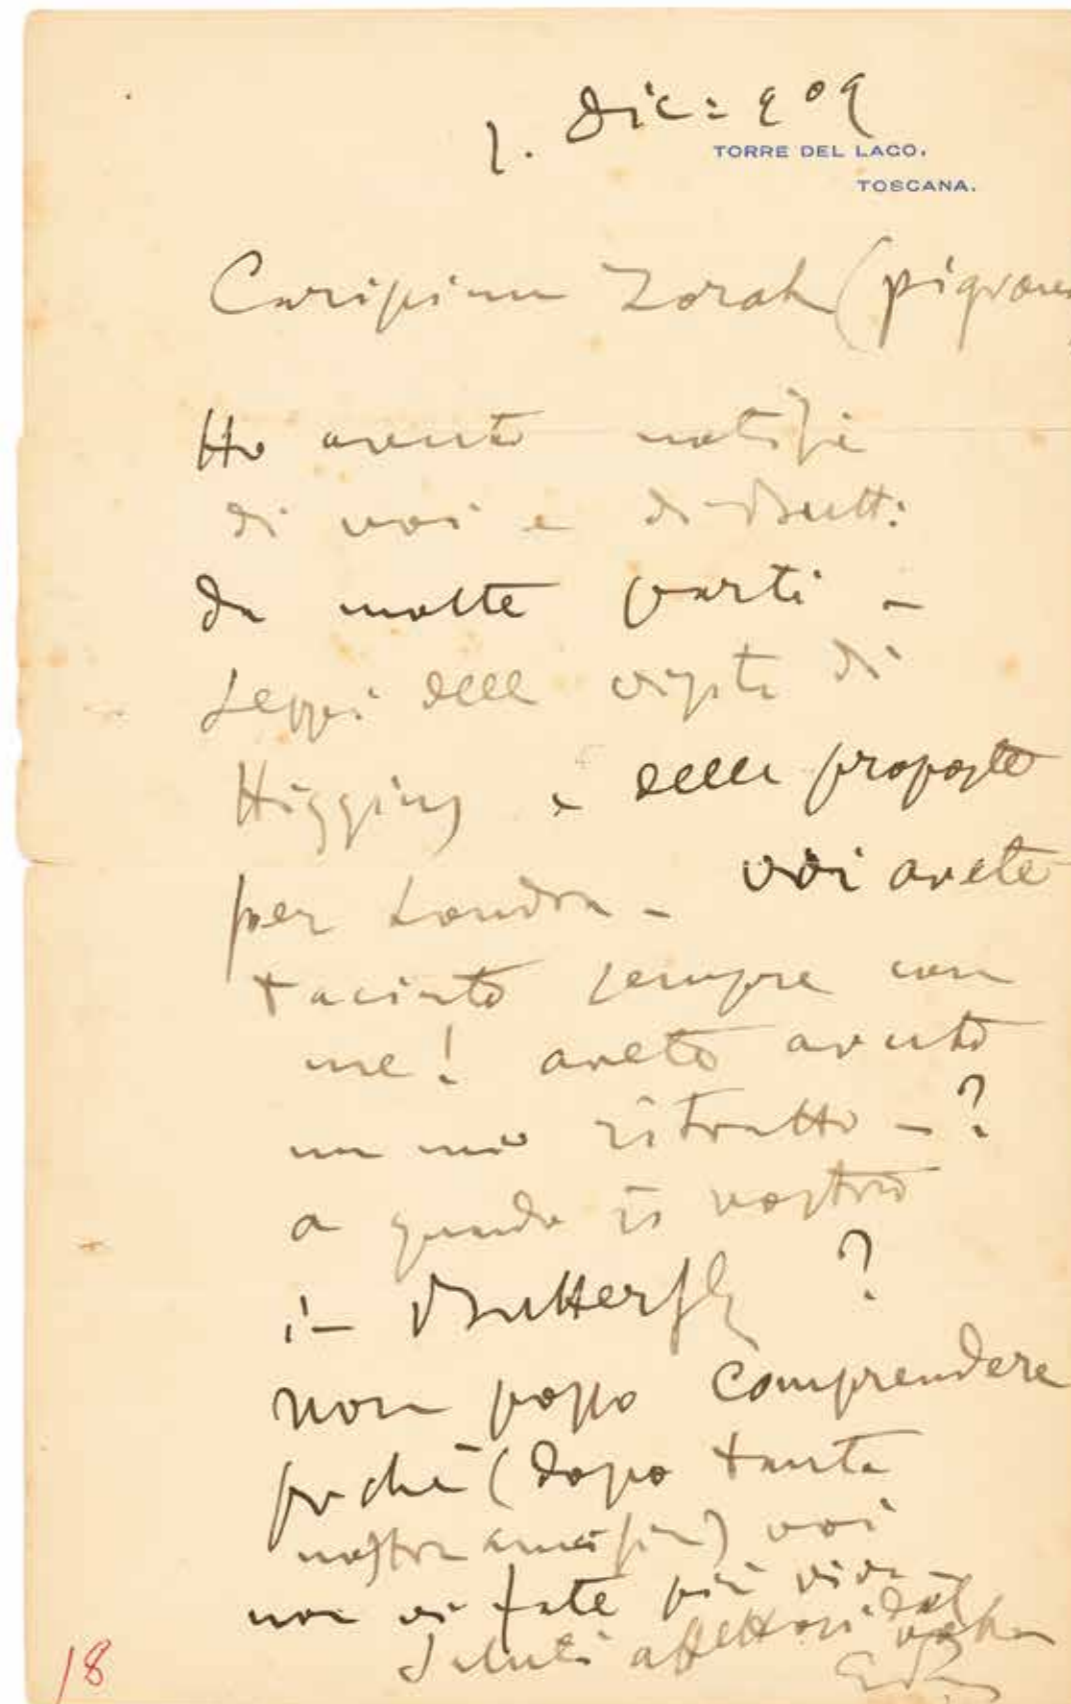 1. Dic: 909
TORRE DEL LAGO.
TOSCANA.
Carissima Zorah (pigrona
Ho avuto notizie
di voi e di Butt:
da molte parti -
Seppi della visita di
Higgins e delle proposte
per Londra - voi avete
taciuto sempre con
me! avete avuto
un mio ritratto - ?
a quando il vostro
in Butterfly ?
non posso comprendere
perchè (dopo tanta
nostra amicizia) voi
non vi fate più viva
Saluti affettuosi dal vostro